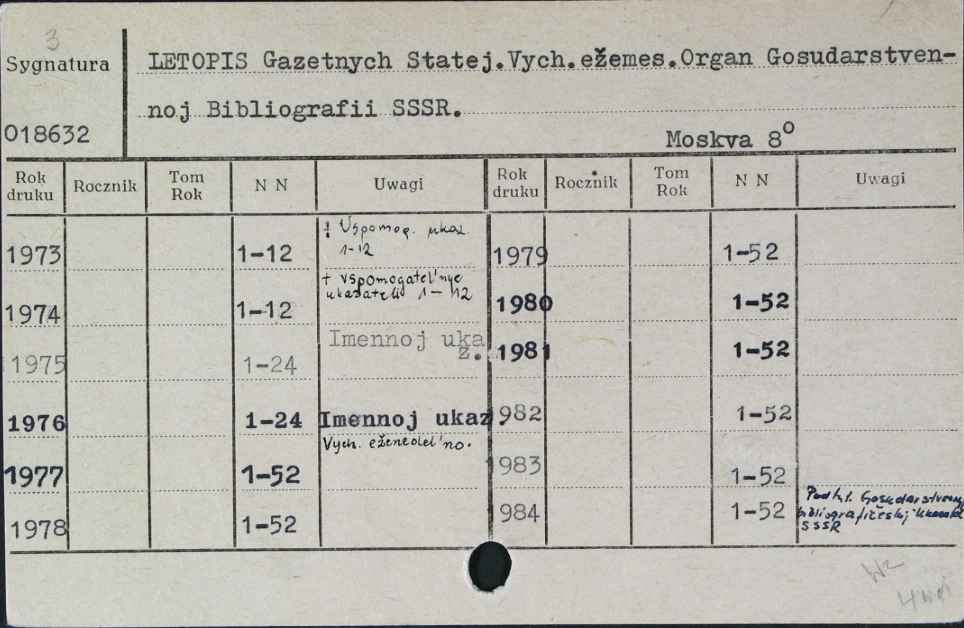 3
Sygnatura
LETOPIS Gazetnych Statej.Vych.ežemes.Organ Gosudarstven-
noj Bibliografii SSSR.
018632
Moskva 8°
Rok druku Rocznik Tom Rok N N Uwagi Rok druku Rocznik Tom Rok N N Uwagi
1973 1-12 + Vspomog. ukaz. 1-12 1979 1-52
1974 1-12 + vspomogatel'nye ukazateli 1-12 1980 1-52
1975 1-24 Imennoj ukaz. 1981 1-52
1976 1-24 Imennoj ukaz. 1982 1-52
1977 1-52 Vych. eženedel'no. 1983 1-52
1978 1-52 1984 1-52 SSSR